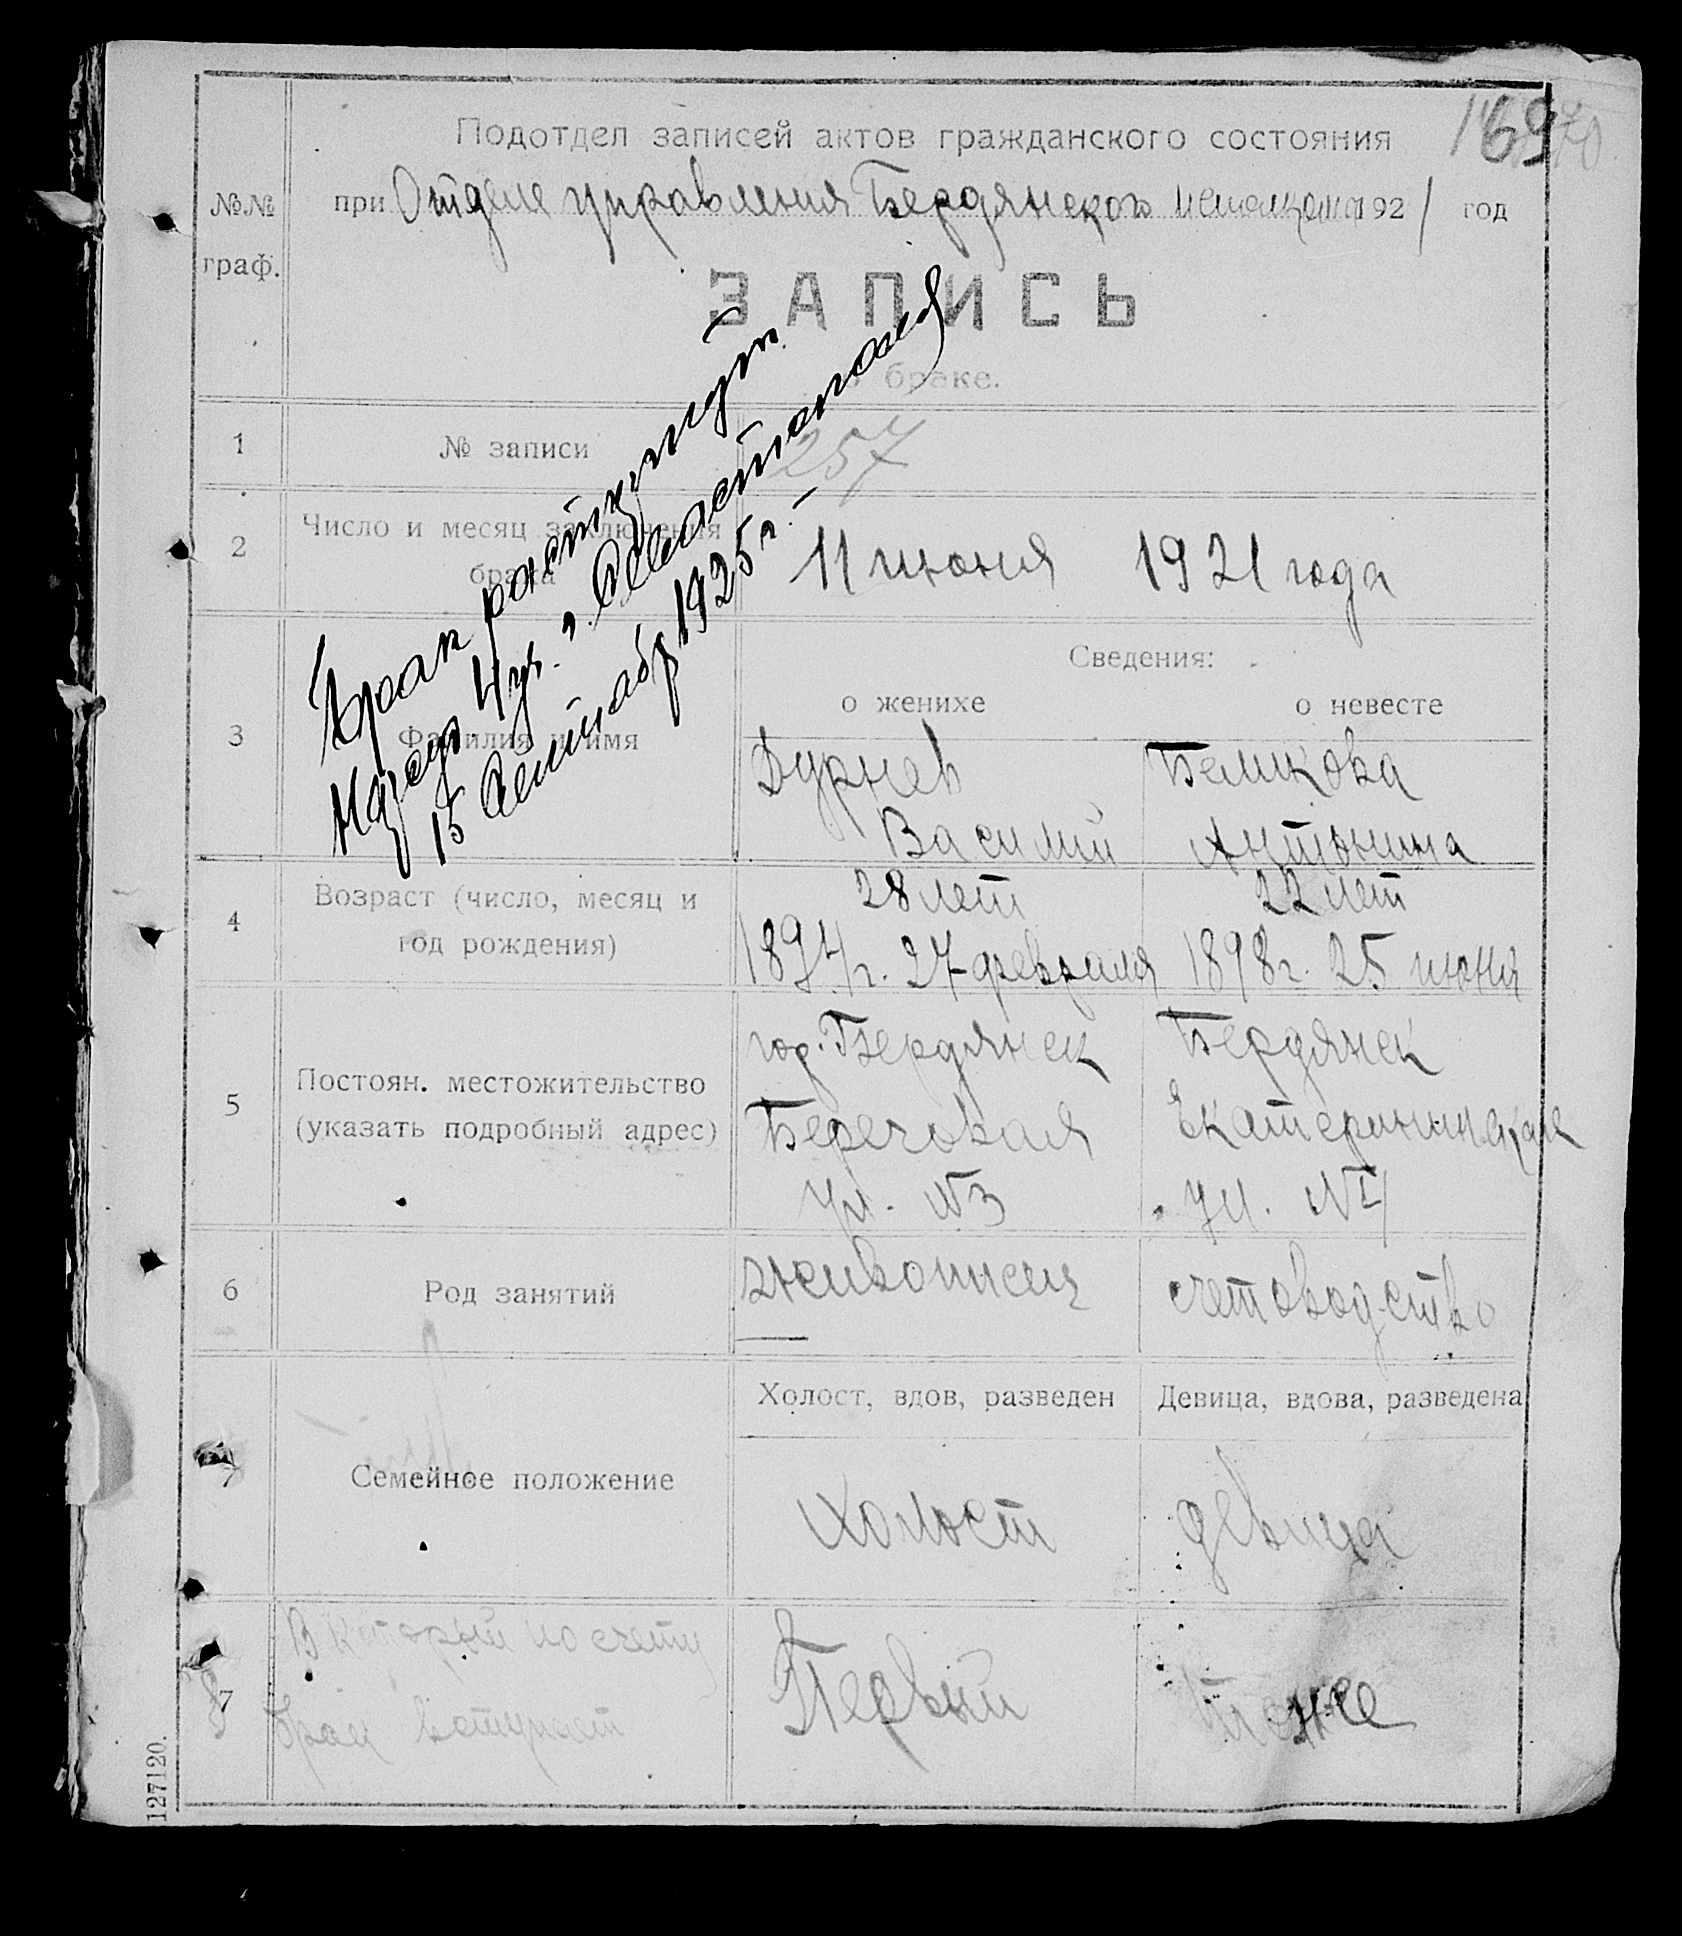 169
Подотдел записей актов гражданского состояния
при Отделе управления Бердянского исполкома 1921 год
№№ граф.
ЗАПИСЬ
о браке.
1 № записи 257
2 Число и месяц заключения брака 11 июня 1921 года
Брак расторгнут
Нарсуд. 4 уч. г. Севастополя
15 Сентябр 1925 г. –
Сведения:
о женихе о невесте
3 Фамилия и имя
Дурнев Беликова
Василий Антонина
4 Возраст (число, месяц и год рождения)
28 лет 22 лет
1894 г. 27 февраля 1898 г. 25 июня
5 Постоян. местожительство (указать подробный адрес)
гор. Бердянск Бердянск
Береговая Екатерининская
ул. №3 ул. №4
6 Род занятий живописец счетоводство
Холост, вдов, разведен Девица, вдова, разведена
7 Семейное положение Холост девица
8 В который по счету
брак вступает
Первый тоже
127120.